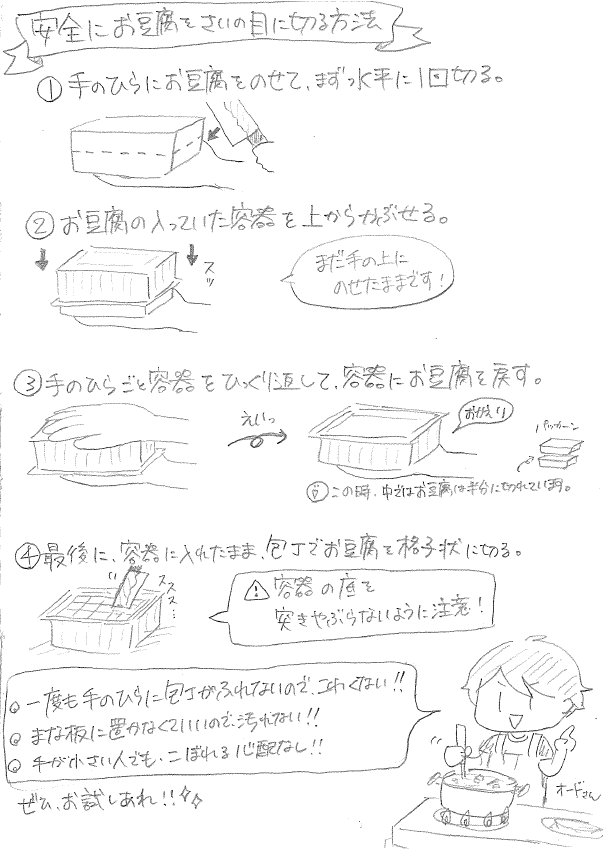 安全にお豆腐をさいの目に切る方法
①手のひらにお豆腐をのせて、まず水平に1回切る。
②お豆腐の入っていた容器を上からかぶせる。
スッ
まだ手の上に
のせたままです!
③手のひらごと容器をひっくり返して、容器にお豆腐を戻す。
えいっ
おかえり
パッカーン
この時、中ではお豆腐は半分に切れています。
④最後に、容器に入れたまま、包丁でお豆腐を格子状に切る。
ススス…
⚠容器の底を
突きやぶらないように注意!
一度も手のひらに包丁がふれないので、こわくない!!
まな板に置かなくていいので、汚れない!!
手が小さい人でも、こぼれる心配なし!!
ぜひ、お試しあれ!!
オードさん